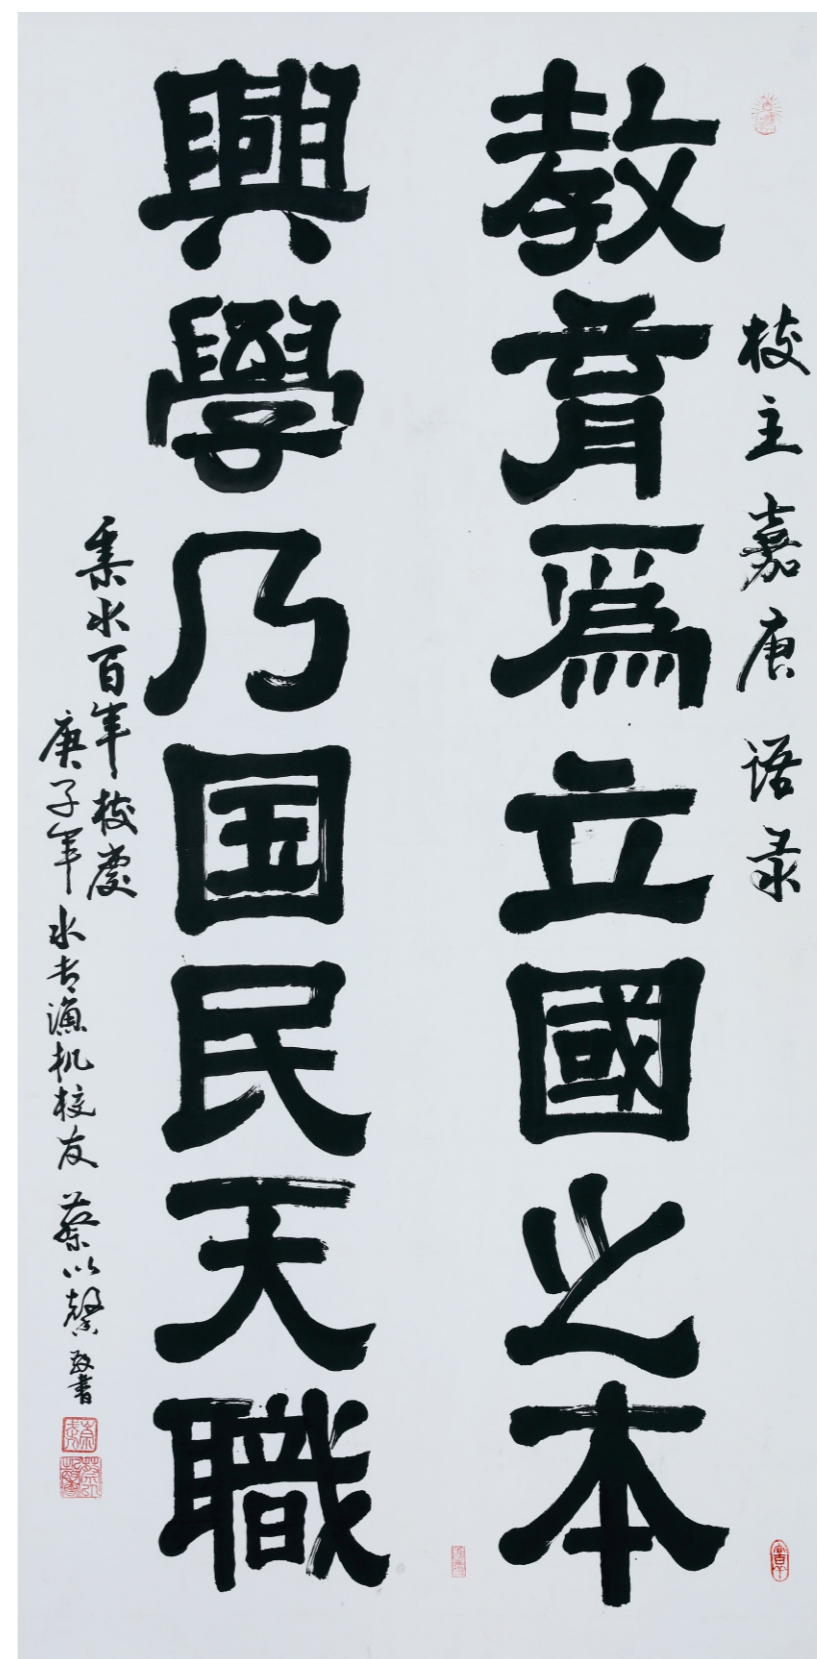 校主嘉庚语录
教育爲立國之本
興學乃国民天職
集水百年校慶
庚子年水专漁机校友蔡以馨敬書